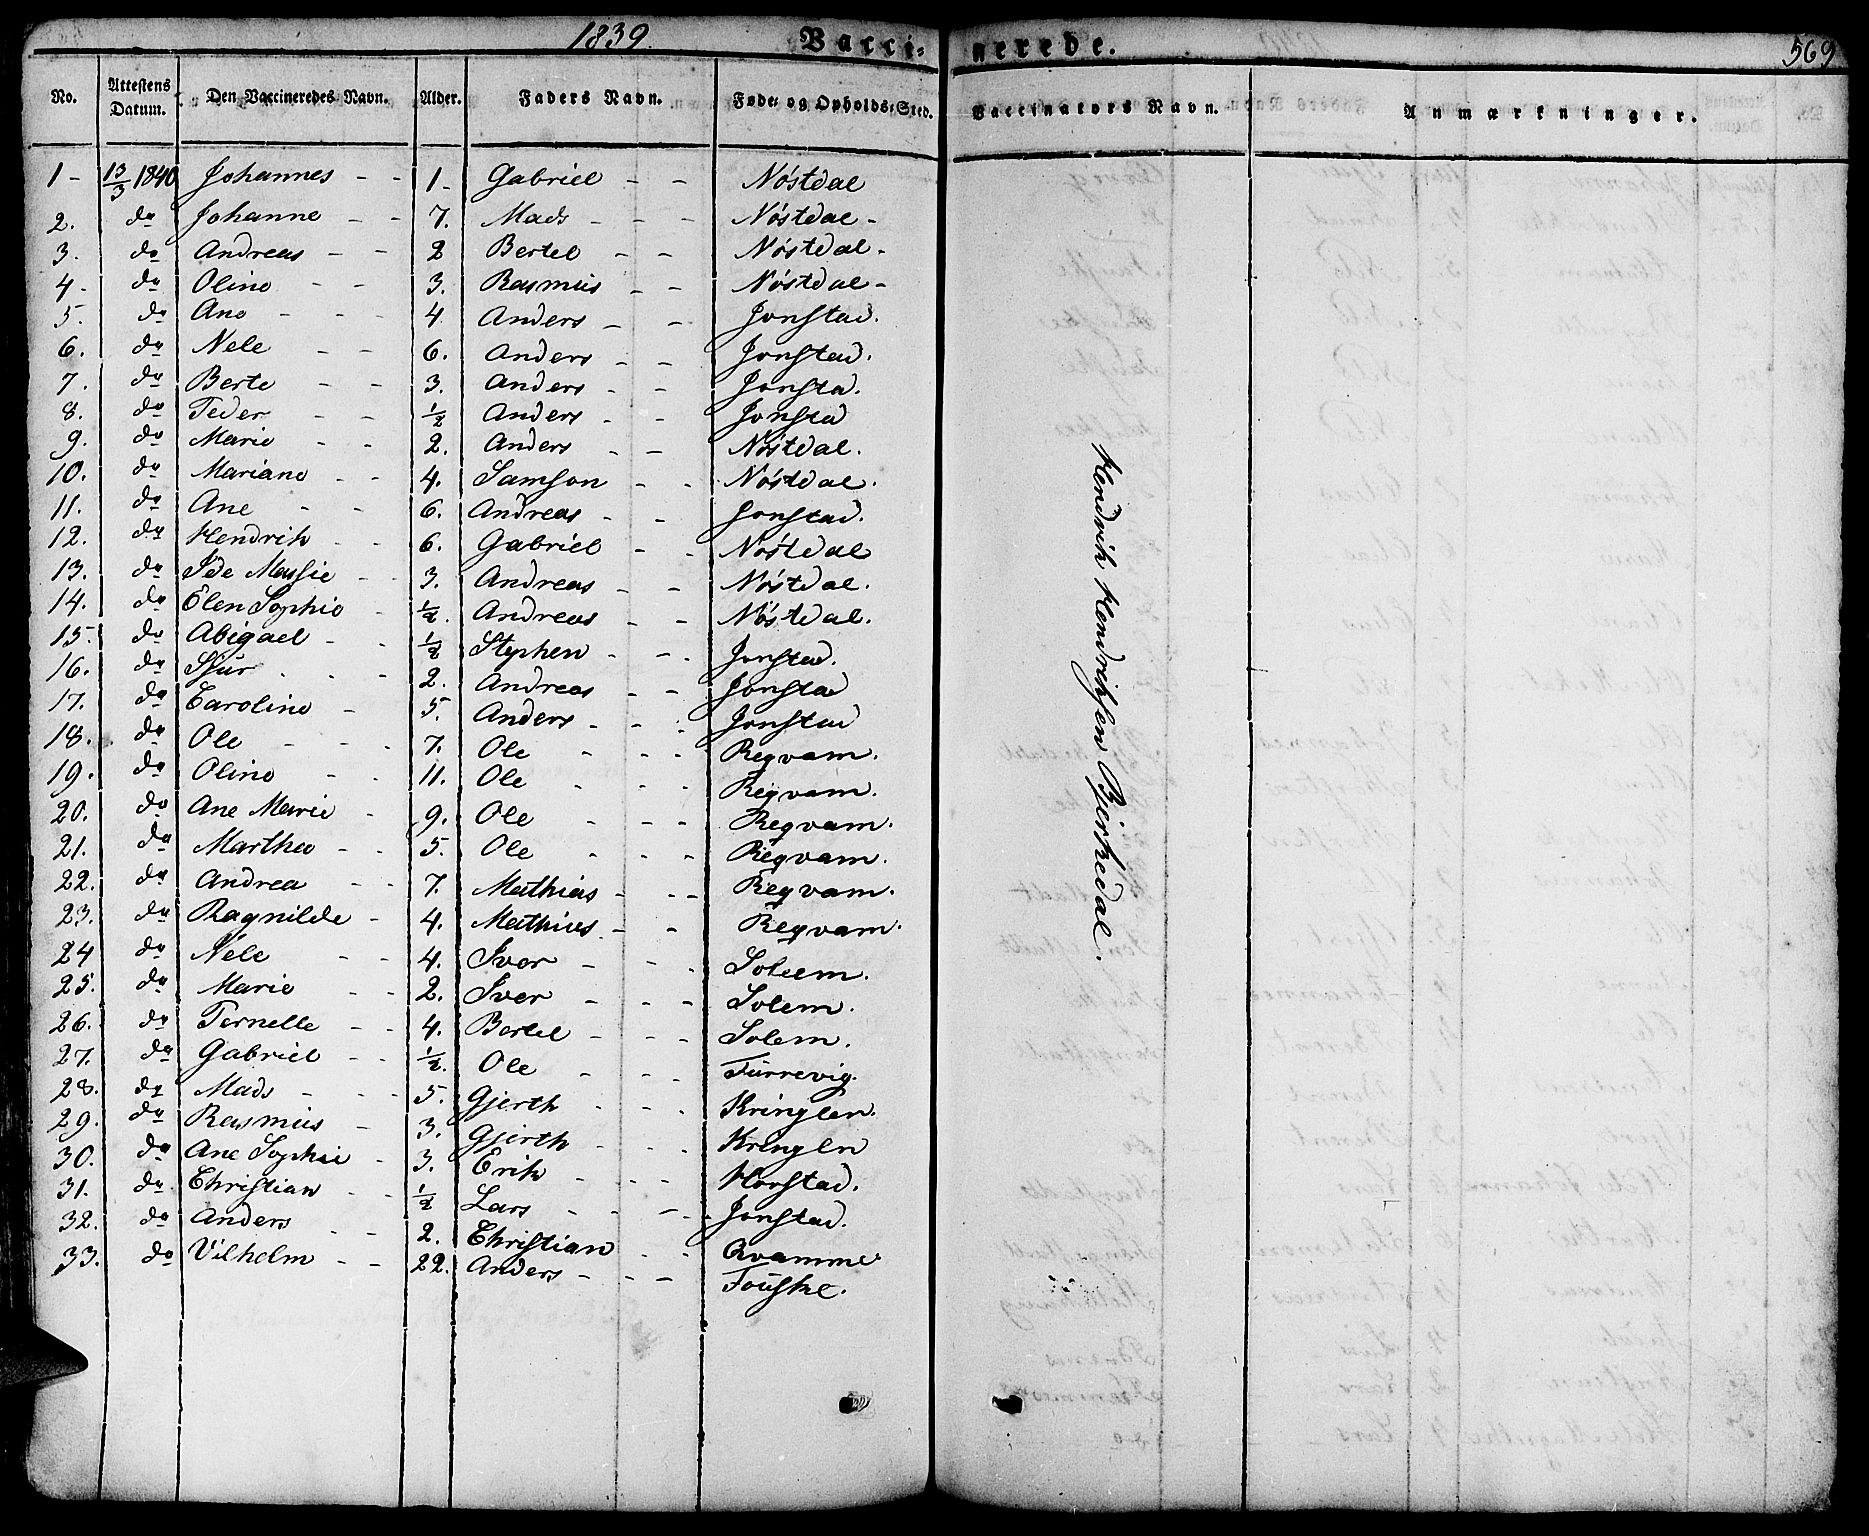 1839. Vaccinerede. 569
No. Attestens Datum. Den Vaccineredes Navn. Alder. Faders Navn. Føde- og Opholds-Sted. Vaccinators Navn. Anmærkninger.
1 - 13/3 1840 Johannes - - 1 - Gabriel - - Nøstdal
2. do Johanne - - 7. Mads - - - Nøstdal -
3. do Andreas - - 2 Bertel - - Nøstdal -
4 - do Oline - - 3. Rasmus - - Nøstdal -
5. do Ane - - - 4 Anders - - Jonstad.
6. do Nele - - 6. Anders - - Jonstad.
7. do Berte - - 3. Anders - - Jonstad.
8. do Peder - - 1/2 Anders - - Jonstad
9. do Marie - - 2. Anders - - Nøstdal.
10. do Mariane - - 4. Samson - - Nøstdal.
11. do Ane - - 6. Andreas - - Jonstad.
12. do Hendrik - - 6. Gabriel - - Nøstdal
13. do Ide Massie - - 3. Andreas - - Nøstdal.
14. do Elen Sophie - 1/2. Andreas - - Nøstdal.
15. do Abigael - - 1/2 Stephen - - Jonstad.
16. do Sjur - - - 2. Andreas - - Jonstad
17. do Caroline - 5. Anders - - Jonstad
18. do Ole - - - 7. Ole - - - Reqvam.
19. do Oline - - 11. Ole - - - Reqvam.
20. do Ane Marie - 9. Ole - - - Reqvam.
21. do Marthe - - 5. Ole - - - Reqvam.
22. do Andrea - - 7. Mathias - - Reqvam.
23. do Ragnilde - 4. Mathias - - Reqvam.
24 do Nele - - 4. Iver - - - Soleem.
25. do Marie - - 2. Iver - - - Solem.
26. do Pernelle - - 4. Bertel - - - Solem.
27. do Gabriel - - 1/2. Ole - - - Furrevig.
28. do Mads - - - 5. Gjerth - - - Kringlen.
29. do Rasmus - 3. Gjerth - - - Kringlen
30. do Ane Sophie - 3. Erik - - - Horstad.
31. do Christian - - 1/2 Lars - - - Jonstad.
32. do Anders - - 2. Christian - - Qvamme
33. do Vilhelm - - 22. Anders - - - Fouske.
Hendrik Hendriksen Bjerkedal.